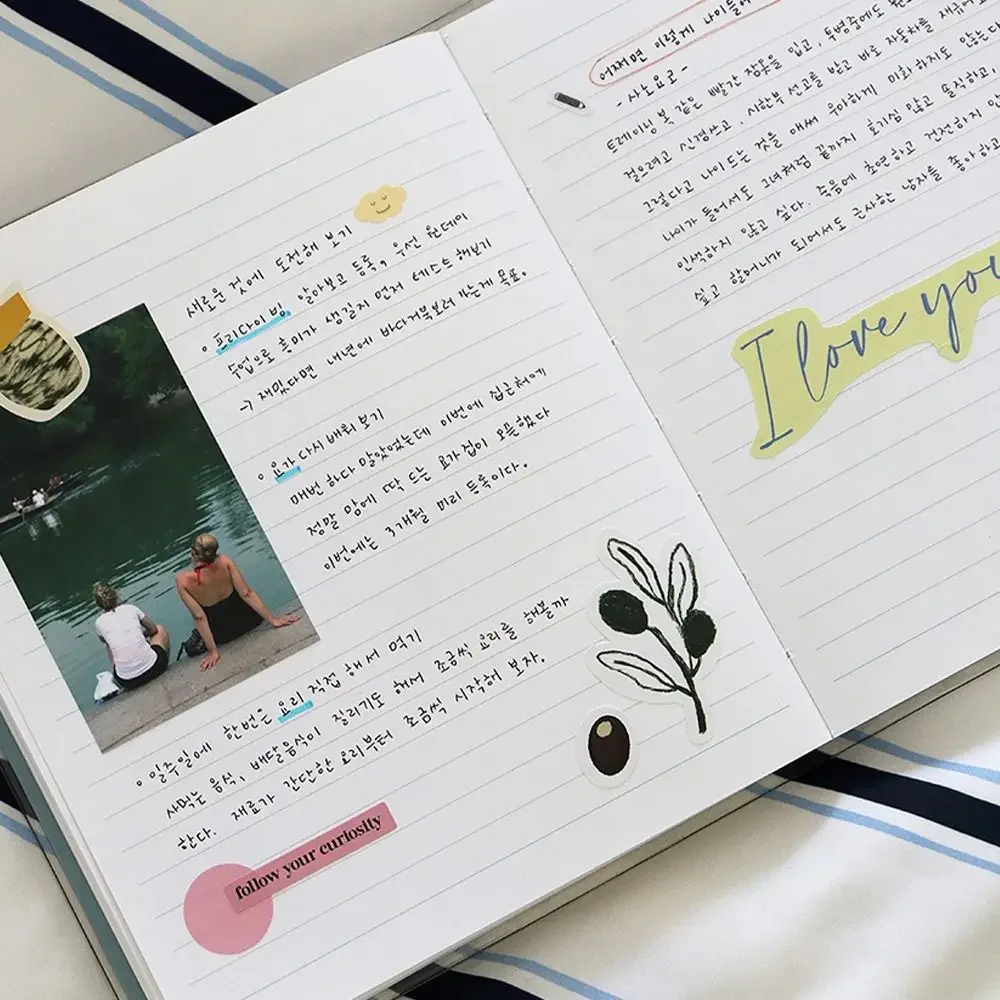 새로운 것에 도전해 보기
프리다이빙 알아보고 등록, 우선 원데이
수업으로 흥미가 생길지 먼저 테스트 해보기
→ 재밌다면 내년에 바다거북보러 가는게 목표.
요가 다시 배워 보기
매번 하다 말았었는데 이번에 집근처에
정말 맘에 딱 드는 요가집이 오픈했다
이번에는 3개월 미리 등록이다.
일주일에 한번은 요리 직접 해서 먹기
사먹는 음식, 배달음식이 질리기도 해서 조금씩 요리를 해볼까
한다. 재료가 간단한 요리부터 조금씩 시작해 보자.
follow your curiosity
어쩌면 이렇게 나이들어
- 사노요코 -
트레이닝 봇 같은 빨간 잠옷을 입고, 투병중에도
걸으려고 신경쓰고. 시한부 선고를 받고 바로 자동차를
그렇다고 나이드는 것을 애써 우아하게 미화하지도 않는다
나이가 들어서도 그녀처럼 끝까지 호기심 많고 솔직하고,
인색하지 않고 싶다. 죽음에 초연하고 건전하지
싶고 할머니가 되어서도 근사한 남자를 좋아하고
I love you